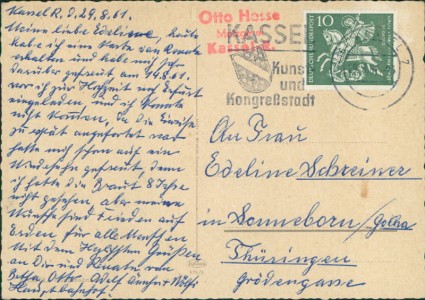 Kassel R, d, 29.8.61.
Meine liebe Edeline, heute
habe ich ein Karte von Renate
erhalten und habe mich sehr
darüber gefreut am 19.8.61.
war ich zur Hochzeit nach Erfurt
eingeladen, und ich konnte
nicht kommen, da die Einreise
zu spät angefordert war
hatte mich schon auf ein
Wiedersehn gefreut, denn
ich hatte die Braut 8 Jahre
nicht gesehen, aber meine
Wünsche sind Frieden auf
Erden, für alle Menschen
Mit den Herzlichsten Grüßen
an Dir und Renate von
Otto, Adolf
Hauptbahnhof.
Otto Hasse
Kassel
KASSEL
Kunst
und
Kongreßstadt
10
DEUTSCHE BUNDESPOST
An Frau
Edeline Schreiner
in Sonneborn/Gotha
Thüringen
Grödengasse